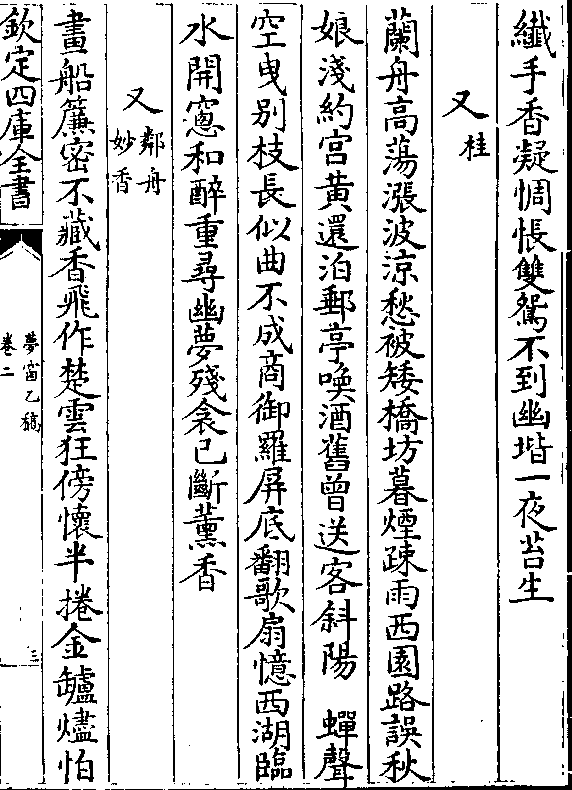 纖手香凝惆悵雙鴛不到幽堦一夜苔生
又桂
蘭舟高蕩漲波涼愁被矮橋坊暮煙踈雨西園路誤秋
娘淺約宫黄還泊郵亭喚酒舊曾送客斜陽　蟬聲
空曳别枝長似曲不成商御羅屏底翻歌扇憶西湖臨
水開窻和醉重尋幽夢殘衾已斷薰香
又鄰舟妙香
畫船簾密不藏香飛作楚雲狂傍懷半捲金鑪燼怕
欽定四庫全書
夢窗乙稿
卷二
三